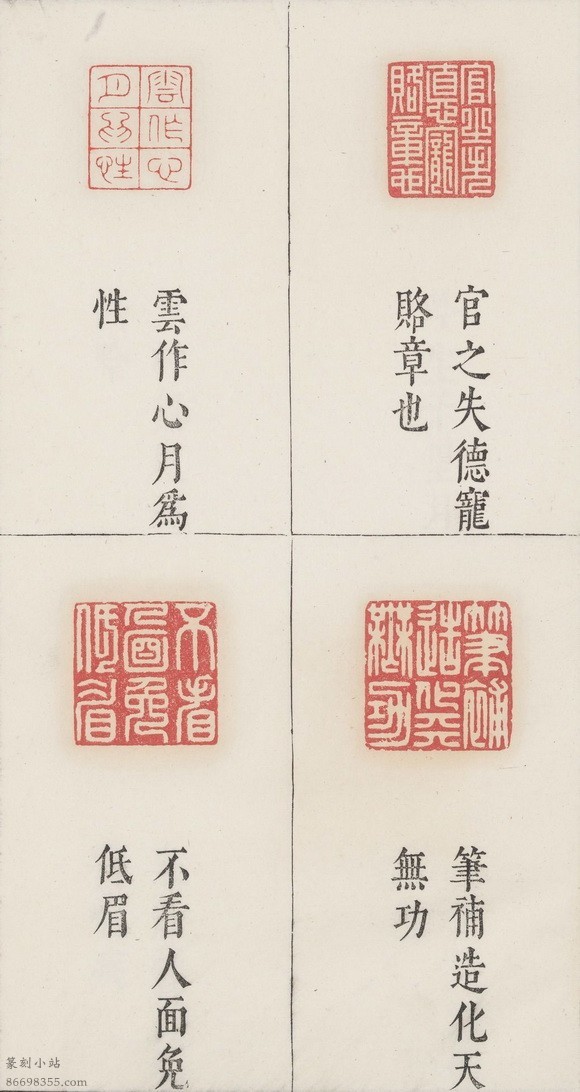 官之失德寵
賂章也
雲作心月爲
性
筆補造化天
無功
不看人面免
低眉
篆刻小站
86698355.com